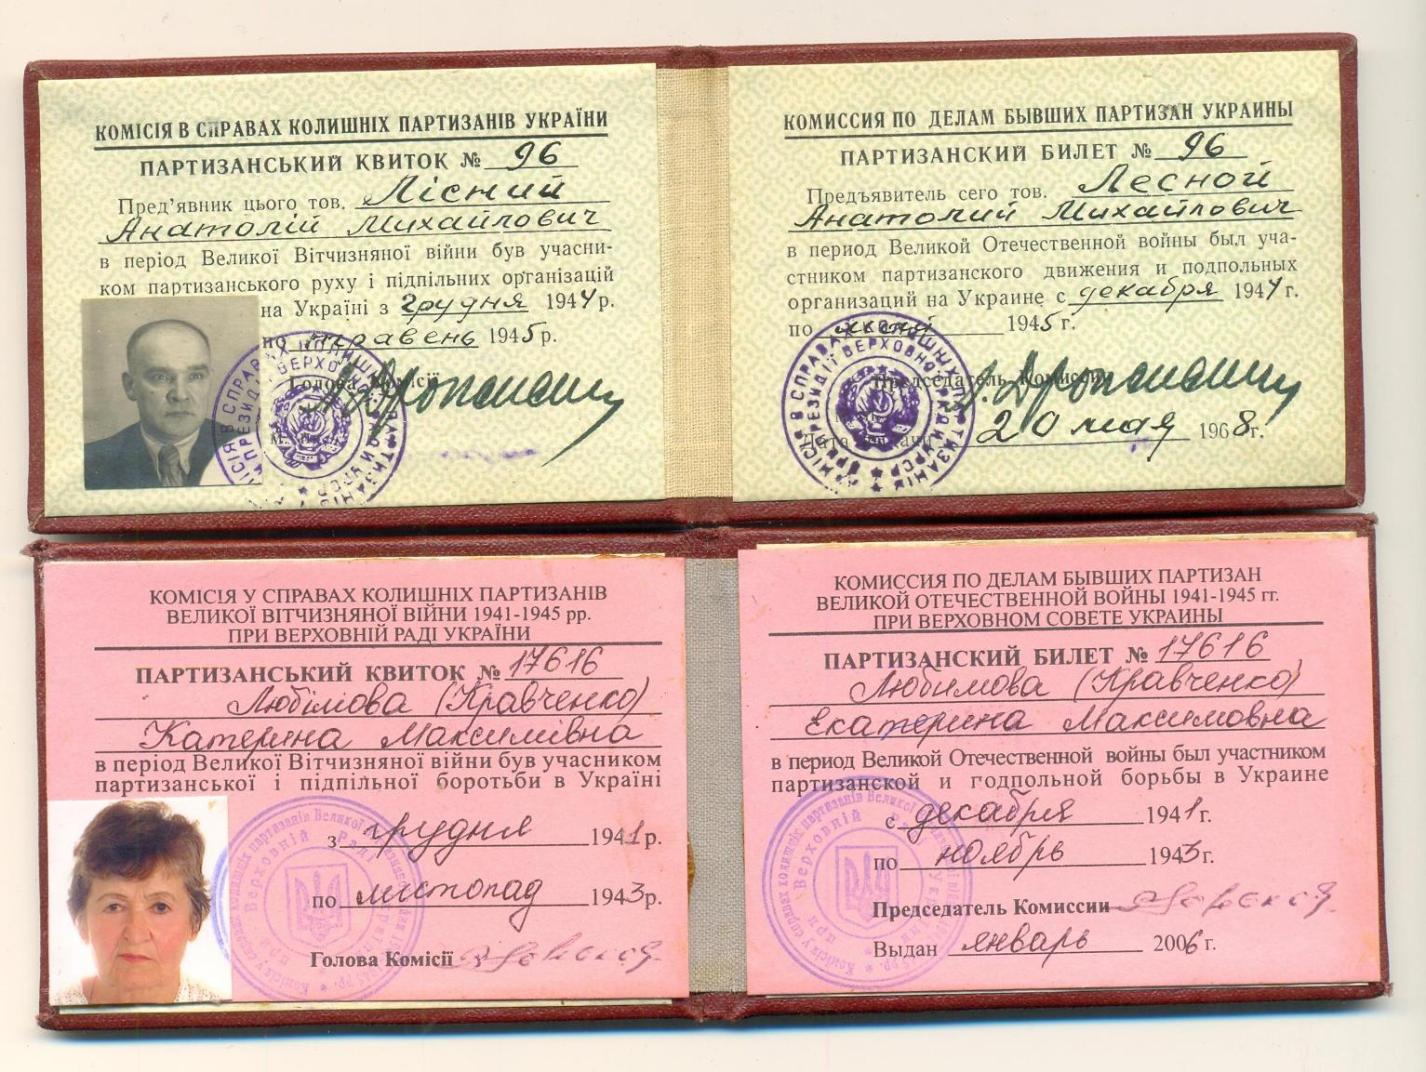 КОМІСІЯ В СПРАВАХ КОЛИШНІХ ПАРТИЗАНІВ УКРАЇНИ
ПАРТИЗАНСЬКИЙ КВИТОК № 96
Пред'явник цього тов. Лісний
Анатолій Михайлович
в період Великої Вітчизняної війни був учасни-
ком партизанського руху і підпільних організацій
на Україні з грудня 1944 р.
по травень 1945 р.
Голова Комісії
КОМИССИЯ ПО ДЕЛАМ БЫВШИХ ПАРТИЗАН УКРАИНЫ
ПАРТИЗАНСКИЙ БИЛЕТ № 96
Предъявитель сего тов. Лесной
Анатолий Михайлович
в период Великой Отечественной войны был уча-
стником партизанского движения и подпольных
организаций на Украине с декабря 1944 г.
по май 1945 г.
Председатель Комиссии
20 мая 1968 г.
КОМІСІЯ У СПРАВАХ КОЛИШНІХ ПАРТИЗАНІВ
ВЕЛИКОЇ ВІТЧИЗНЯНОЇ ВІЙНИ 1941-1945 рр.
ПРИ ВЕРХОВНІЙ РАДІ УКРАЇНИ
ПАРТИЗАНСЬКИЙ КВИТОК № 17616
Любімова (Кравченко)
Катерина Максимівна
в період Великої Вітчизняної війни був учасником
партизанської і підпільної боротьби в Україні
з грудня 1941 р.
по листопад 1943 р.
Голова Комісії
КОМИССИЯ ПО ДЕЛАМ БЫВШИХ ПАРТИЗАН
ВЕЛИКОЙ ОТЕЧЕСТВЕННОЙ ВОЙНЫ 1941-1945 гг.
ПРИ ВЕРХОВНОМ СОВЕТЕ УКРАИНЫ
ПАРТИЗАНСКИЙ БИЛЕТ № 17616
Любимова (Кравченко)
Екатерина Максимовна
в период Великой Отечественной войны был участником
партизанской и годпольной борьбы в Украине
с декабря 1941 г.
по ноябрь 1943 г.
Председатель Комиссии
Выдан январь 2006 г.